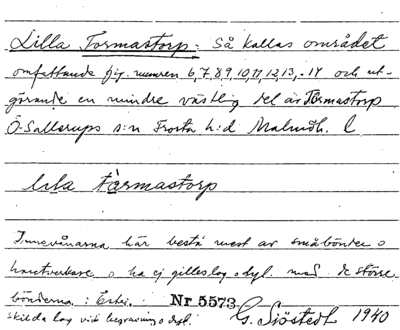 Lilla Tormastorp: Så kallas området
omfattande fig. numren 6,7,8,9,10,11,12,13,-14 och ut-
görande en mindre västlig del av Tormastorp
Ö. Sallerups s:n Frosta h:d Malmöh. l
lila tårmastorp
Innevånarna här bestå mest av småbönder o
hantverkare o ha ej gilleslag o dyl. med de större
bönderna i Nr 5573
skilda lag vid begravning o dyl. G. Sjöstedt 1940